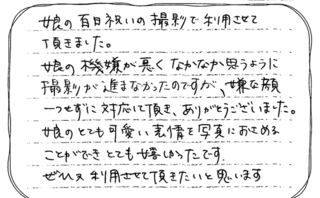 娘の百日祝いの撮影で利用させて
頂きました。
娘の機嫌が悪くなかなか思うように
撮影が進まなかったのですが、嫌な顔
一つせずに対応して頂き、ありがとうございました。
娘のとても可愛い表情を写真におさめる
ことができとても嬉しかったです。
ぜひ又利用させて頂きたいと思います